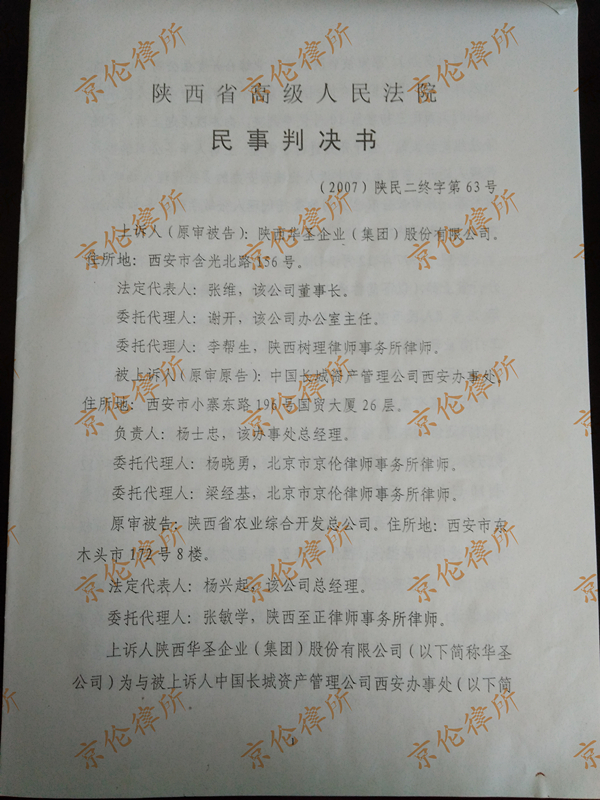 陕西省高级人民法院
民事判决书
(2007)陕民二终字第63号
上诉人(原审被告):陕西华圣企业(集团)股份有限公司。
住所地:西安市含光北路156号。
法定代表人:张维,该公司董事长。
委托代理人:谢开,该公司办公室主任。
委托代理人:李帮生,陕西树理律师事务所律师。
被上诉人(原审原告):中国长城资产管理公司西安办事处,
住所地:西安市小寨东路196号国贸大厦26层。
负责人:杨士忠,该办事处总经理。
委托代理人:杨晓勇,北京市京伦律师事务所律师。
委托代理人:梁经基,北京市京伦律师事务所律师。
原审被告:陕西省农业综合开发总公司。住所地:西安市东
木头市172号8楼。
法定代表人:杨兴起,该公司总经理。
委托代理人:张敏学,陕西至正律师事务所律师。
上诉人陕西华圣企业(集团)股份有限公司(以下简称华圣
公司)为与被上诉人中国长城资产管理公司西安办事处(以下简
京伦律所